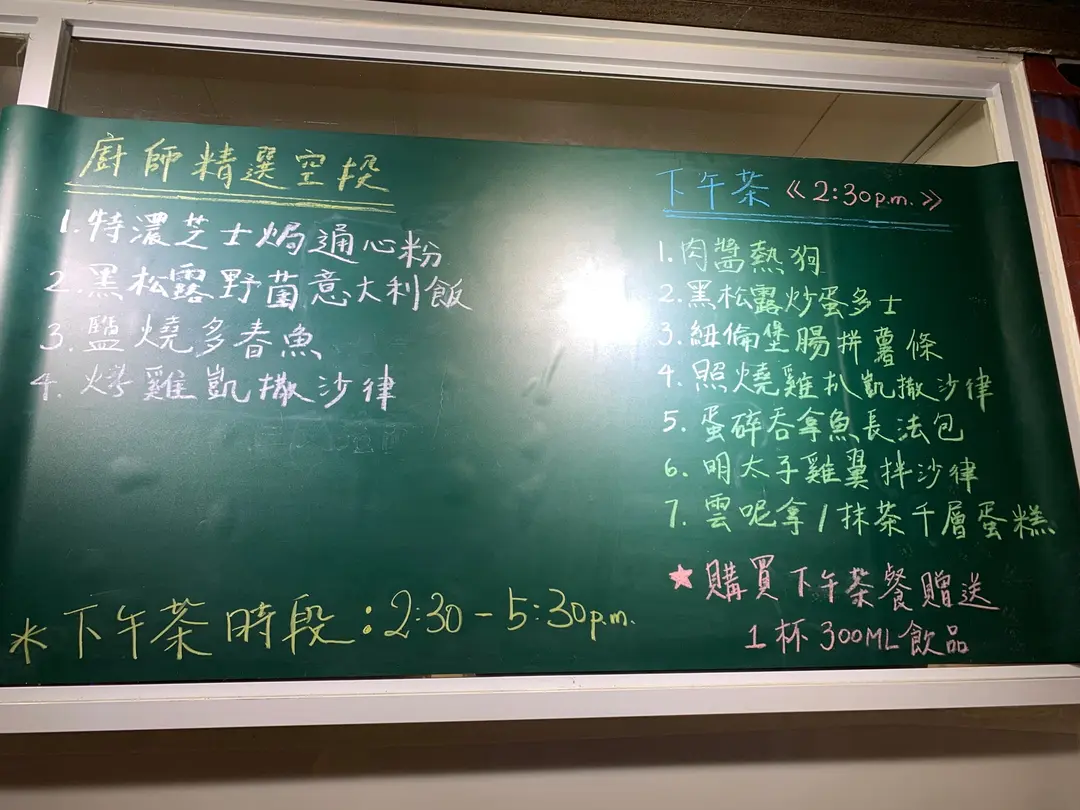 廚師精選空段
1.特濃芝士焗通心粉
2.黑松露野菌意大利飯
3.鹽燒多春魚
4.烤雞凱撒沙律
*下午茶時段:2:30-5:30p.m.
下午茶《2:30p.m.》
1.肉醬熱狗
2.黑松露炒蛋多士
3.紐倫堡腸拼薯條
4.照燒雞扒凱撒沙律
5.蛋碎吞拿魚長法包
6.明太子雞翼拌沙律
7.雲呢拿/抹茶千層蛋糕
★購買下午茶餐贈送
1杯300ML飲品